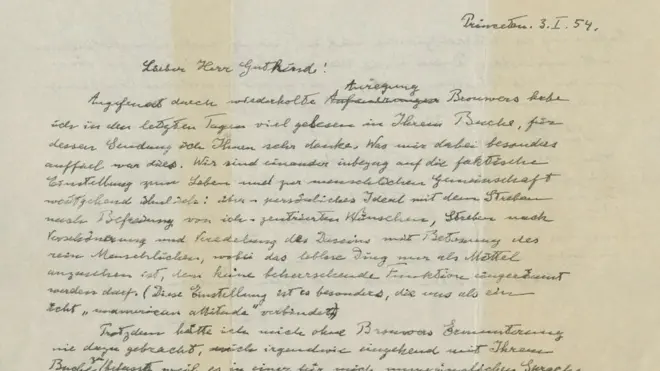 Princeton. 3. I. 54.
Lieber Herr Gutkind!
Angefeuert durch wiederholte Anregung Brouwers habe
ich in den letzten Tagen viel gelesen in Ihrem Buche, für
dessen Sendung ich Ihnen sehr danke. Was mir dabei besonders
auffiel war dies. Wir sind einander inbezug auf die faktische
Einstellung zum Leben und zur menschlichen Gemeinschaft
weitgehend ähnlich: über-persönliches Ideal mit dem Streben
nach Befreiung von ich-zentrierten Wünschen, Streben nach
Verschönerung und Veredelung des Daseins mit Betonung des
rein Menschlichen, wobei das leblose Ding nur als Mittel
anzusehen ist, dem keine beherrschende Funktion eingeräumt
werden darf. (Diese Einstellung ist es besonders, die uns als ein
echt „unamerican attitude" verbindet)
Trotzdem hätte ich mich ohne Brouwers Ermunterung
nie dazu gebracht, mich irgendwie eingehend mit Ihrem
Buche weil es in einer für mich Sprache